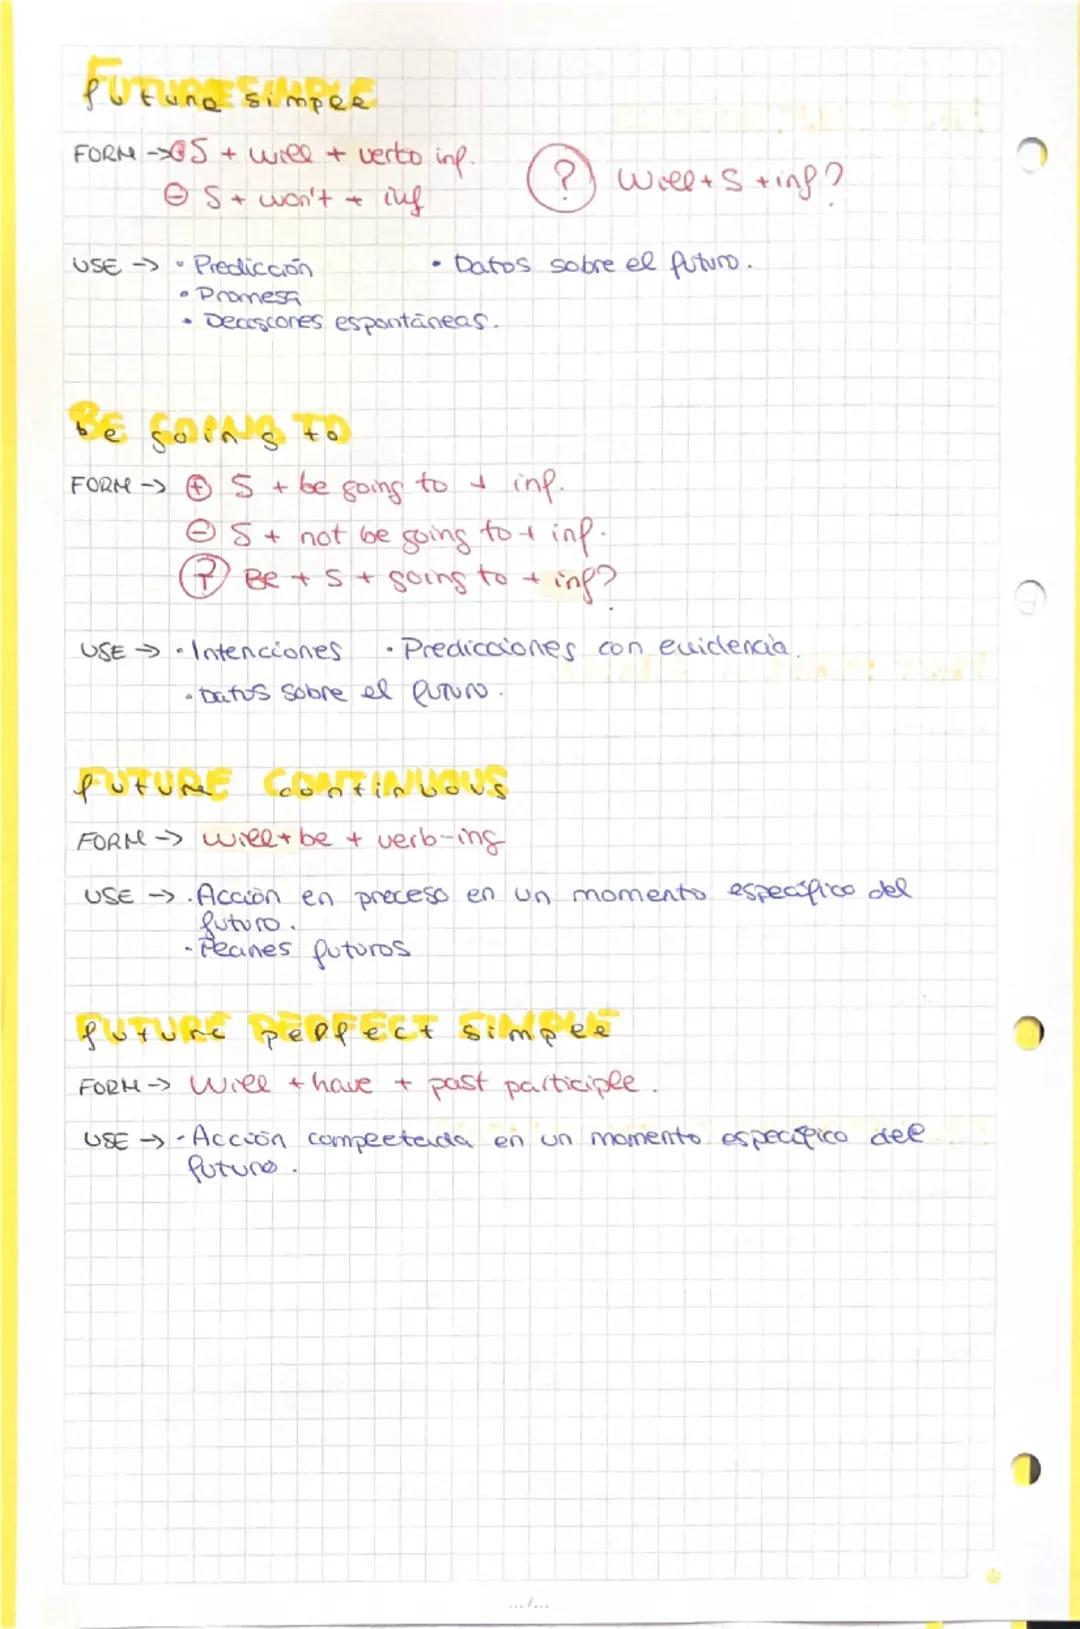 Future simple
FORM → ⊕ S + will + verbo inf.
⊖ S + won't + inf
? Will + S + inf?
USE → • Predicción
• Promesa
• Decisiones espontáneas.
• Datos sobre el futuro.
be going to
FORM → ⊕ S + be going to + inf.
⊖ S + not be going to + inf.
? Be + S + going to + inf?
USE → • Intenciones • Predicciones con evidencia.
• Datos sobre el futuro.
future continuous
FORM → will + be + verb-ing
USE → • Acción en proceso en un momento específico del
futuro.
- Planes futuros
future perfect simple
FORM → Will + have + past participle.
USE → • Acción completada en un momento específico del
futuro.
.../...